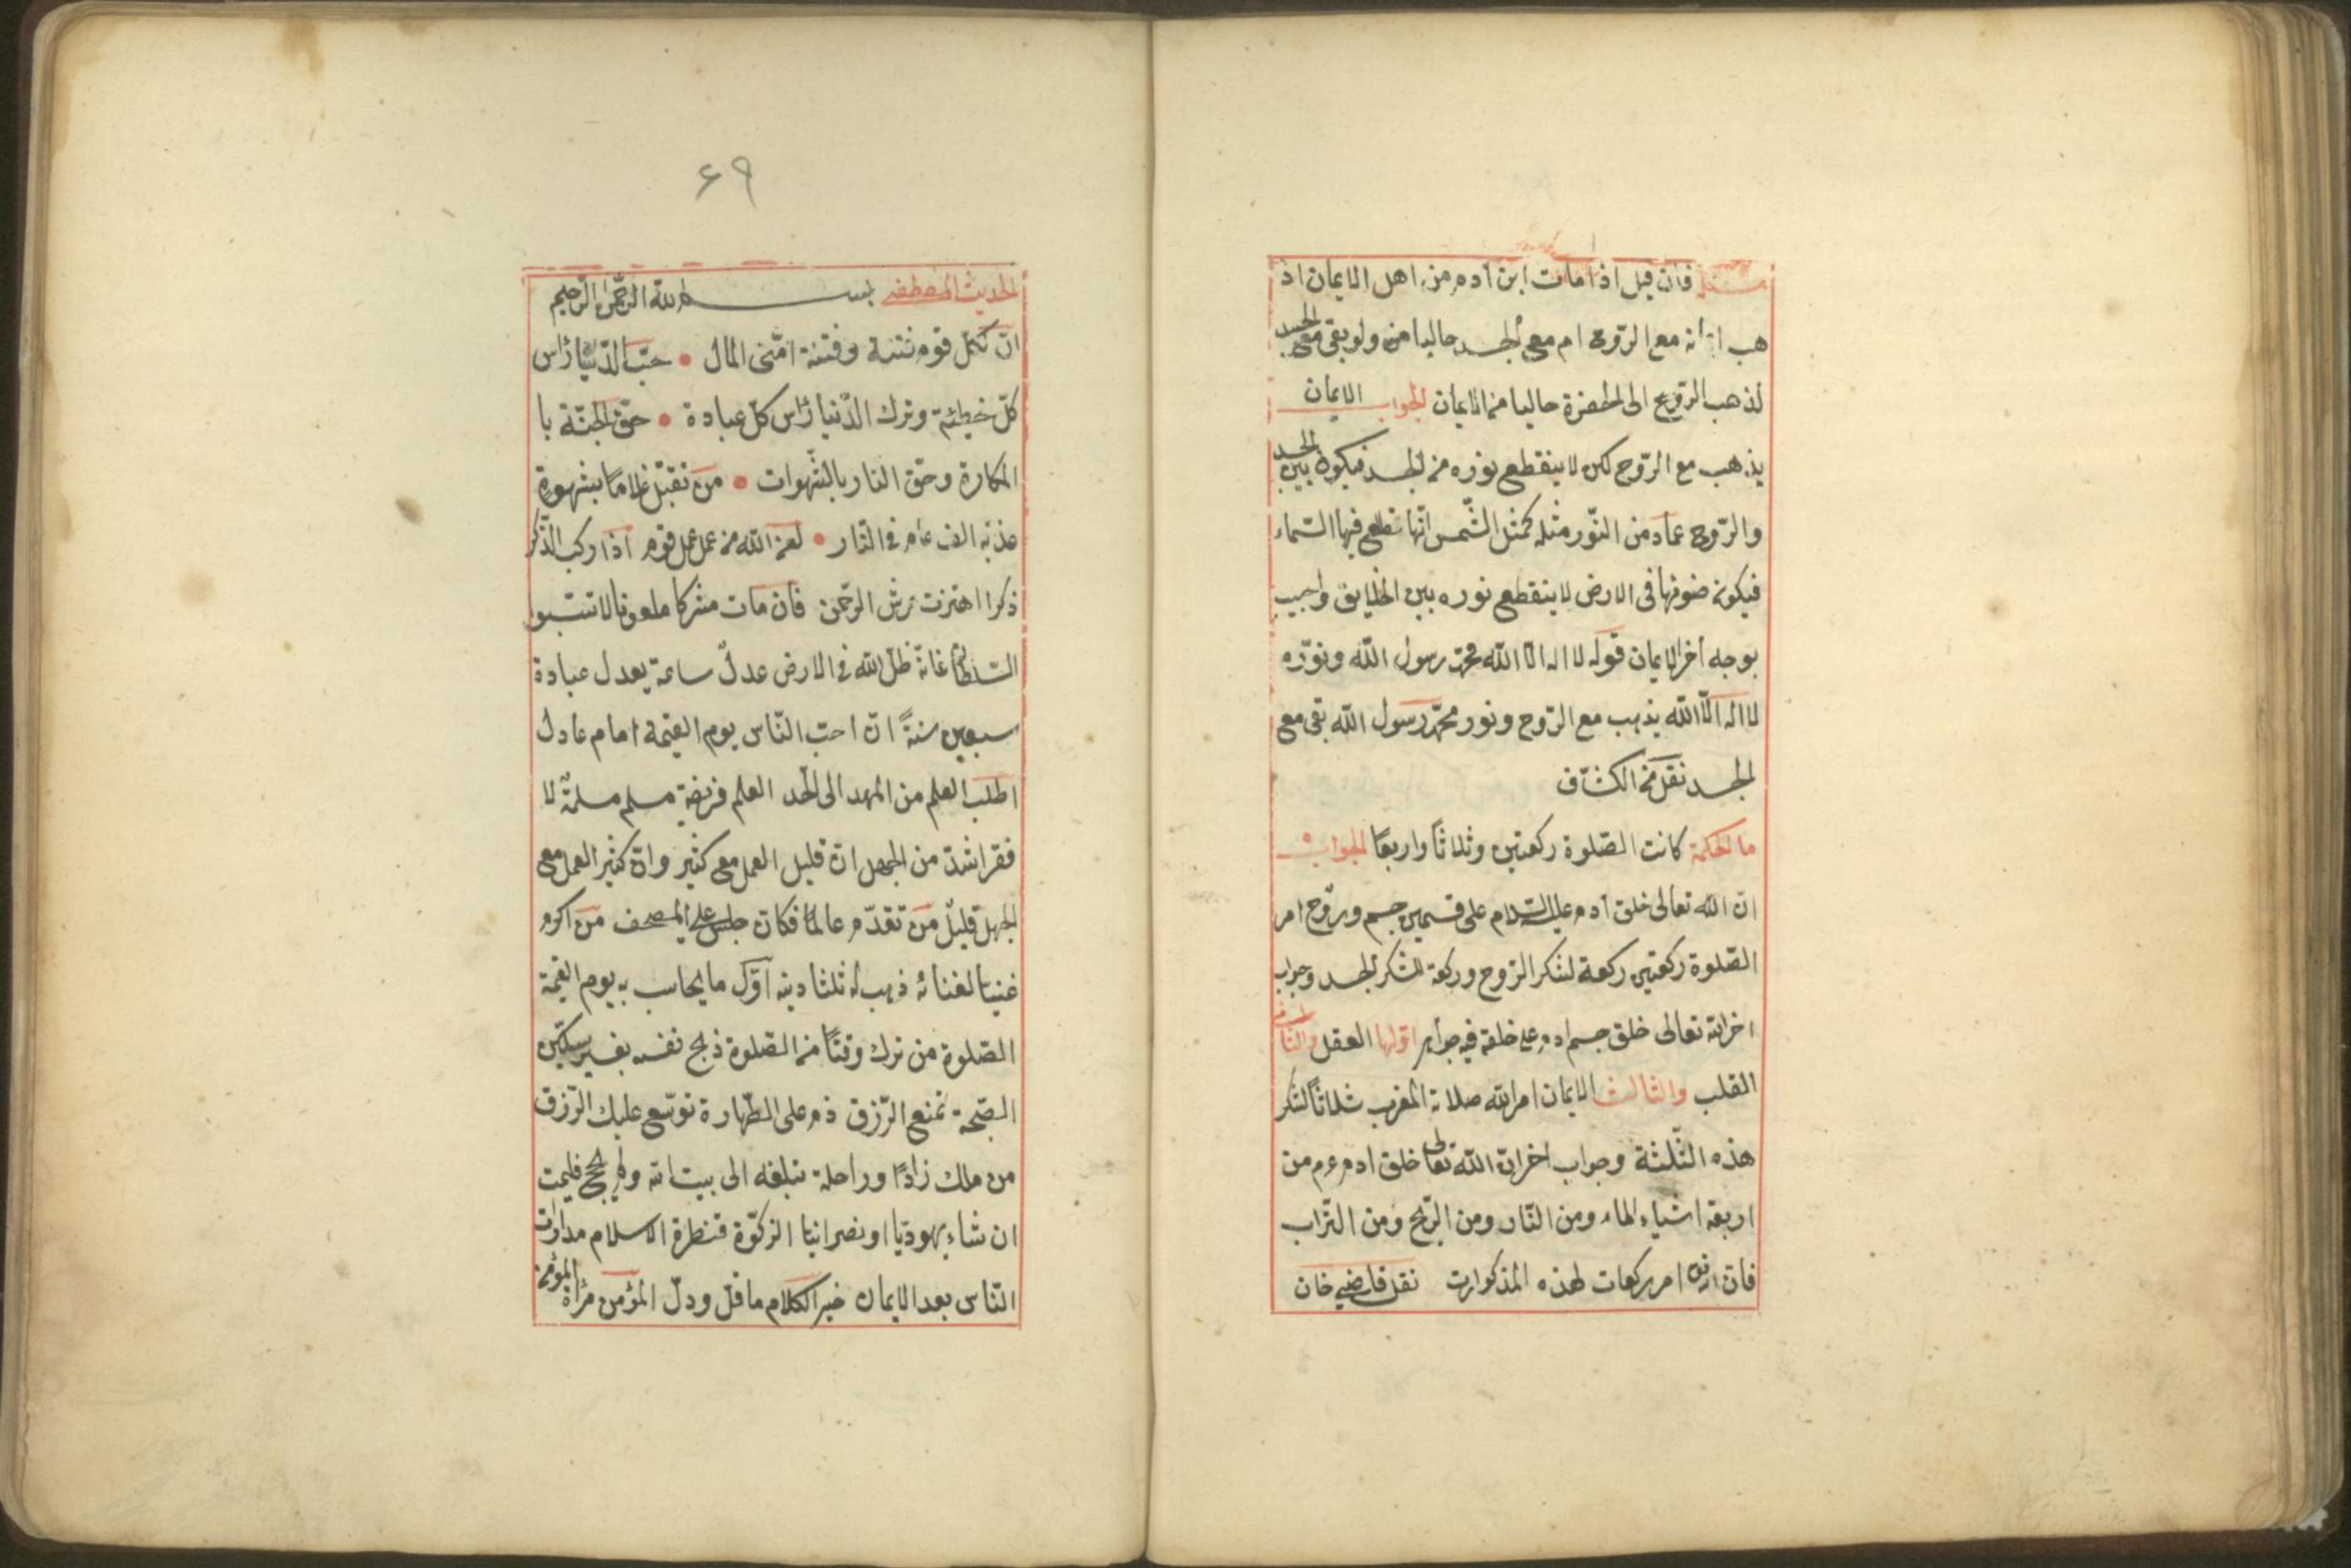 مسئلة فان قيل اذا مات ابن آدم من اهل الايمان اذ
هب ايمانه مع الرّوح ام مع الجسد حاليا من ولو بقى مع الجسد
لذهب الرّوح الى الحضرة حاليا من الايمان الجواب الايمان
يذهب مع الرّوح لكن لا ينقطع نوره من الجسد فيكون بين الجسد
والرّوح عماد من النّور مثله كمثل الشّمس انّها تطلع فيها السّماء
فيكون ضوئها فى الارض لا ينقطع نوره بين الخلايق واجيب
بوجه آخر الايمان قوله لا اله الّا الله محمّد رسول الله ونوّره
لا اله الّا الله يذهب مع الرّوح ونور محمّد رسول الله بقى مع
الجسد نقل من الكشّاف
ما الحكمة كانت الصّلوة ركعتين وثلاثاً واربعاً الجواب
انّ الله تعالى خلق آدم عليه السّلام على قسمين جسم وروّح امر
الصّلوة ركعتين ركعة لشكر الرّوح وركعة لشكر الجسد وجواب
اخر انّه تعالى خلق جسم ادم على خلقة فيه جواهر اوّلها العقل والثانى
القلب والثالث الايمان امر الله صلاة المغرب ثلاثاً لشكر
هذه الثّلثة وجواب اخر انّ الله تعالى خلق ادم عم من
اربعة اشياء الماء ومن النّار ومن الرّيح ومن التّراب
فان امر ركعات لهذه المذكورات نقل قاضى خان
۶۹
الحديث المصطفى بسم الله الرّحمن الرّحيم
انّ لكلّ قوم فتنة وفتنة امّتى المال • حبّ الدّنيا رٔاس
كلّ خطيئة وترك الدّنيا رٔاس كلّ عبادة • حقّ الجنّة با
المكارة وحقّ النار بالشّهوات • من تقبّل غلاما بشهوة
عذبه الف عام فى النّار • لعن الله من عمل عمل قوم اذا ركب الذّكر
ذكرا اهتزت عرش الرحمن فان مات مشركا ملعونا لا تسّبو
السّلطان فانّه ظلّ الله فى الارض عدلٌ ساعة يعدل عبادة
سبعين سنةً انّ احبّ النّاس يوم القيمة امام عادل
اطلب العلم من المهد الى اللّحد العلم فريضة مسلم مسلمةٌ لا
فقر اشدّ من الجهل انّ قليل العمل مع كثير وانّ كثير العمل مع
الجهل قليلٌ من تقدّم عالماً فكان جلس على المصحف من اكرم
غنيّا لغنائه ذهب له ثلثا دينه اوّل ما يحاسب به يوم القيمة
الصّلوة من ترك وقتاً من الصّلوة ذبح نفسه بغير سكّين
الصّحة تمنع الرّزق ذم على الطّهارة توسّع عليك الرّزق
من ملك زاداً وراحلة تبلغه الى بيت الله ولم يحج فليمت
ان شاء يهوديّا او نصرانيا الزكوّة قنطرة الاسلام مدارات
النّاس بعد الايمان خير الكلام ما قلّ ودلّ المؤمن مرٔاة المؤمن